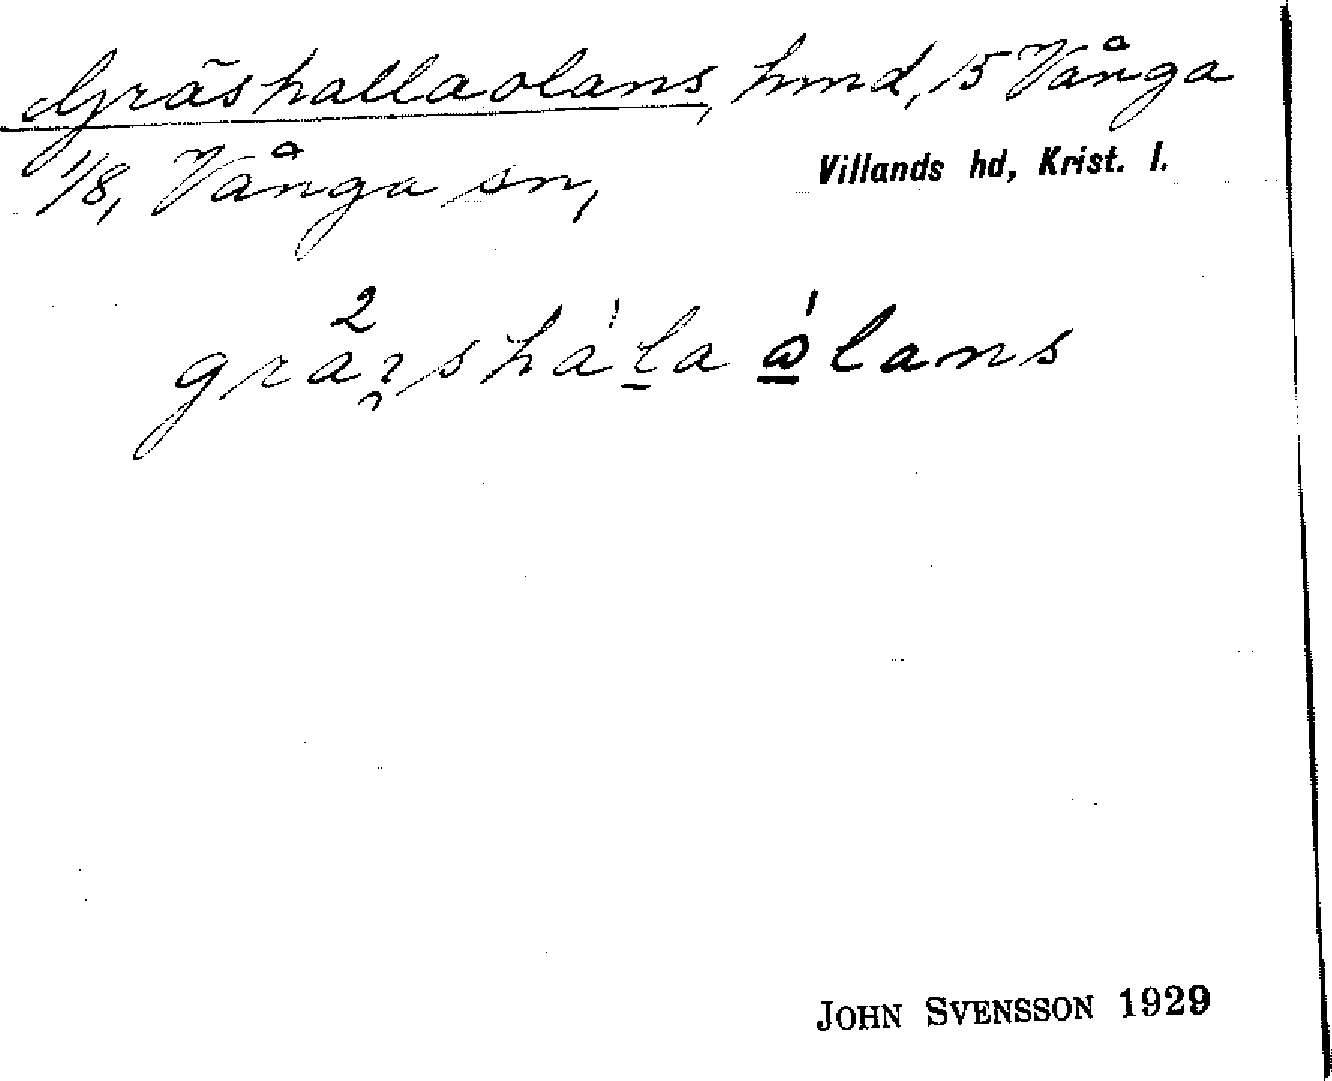 Gräshallaolans, hmd, 15 Vånga
1/8, Vånga sn,
Villands hd, Krist. l.
JOHN SVENSSON 1929